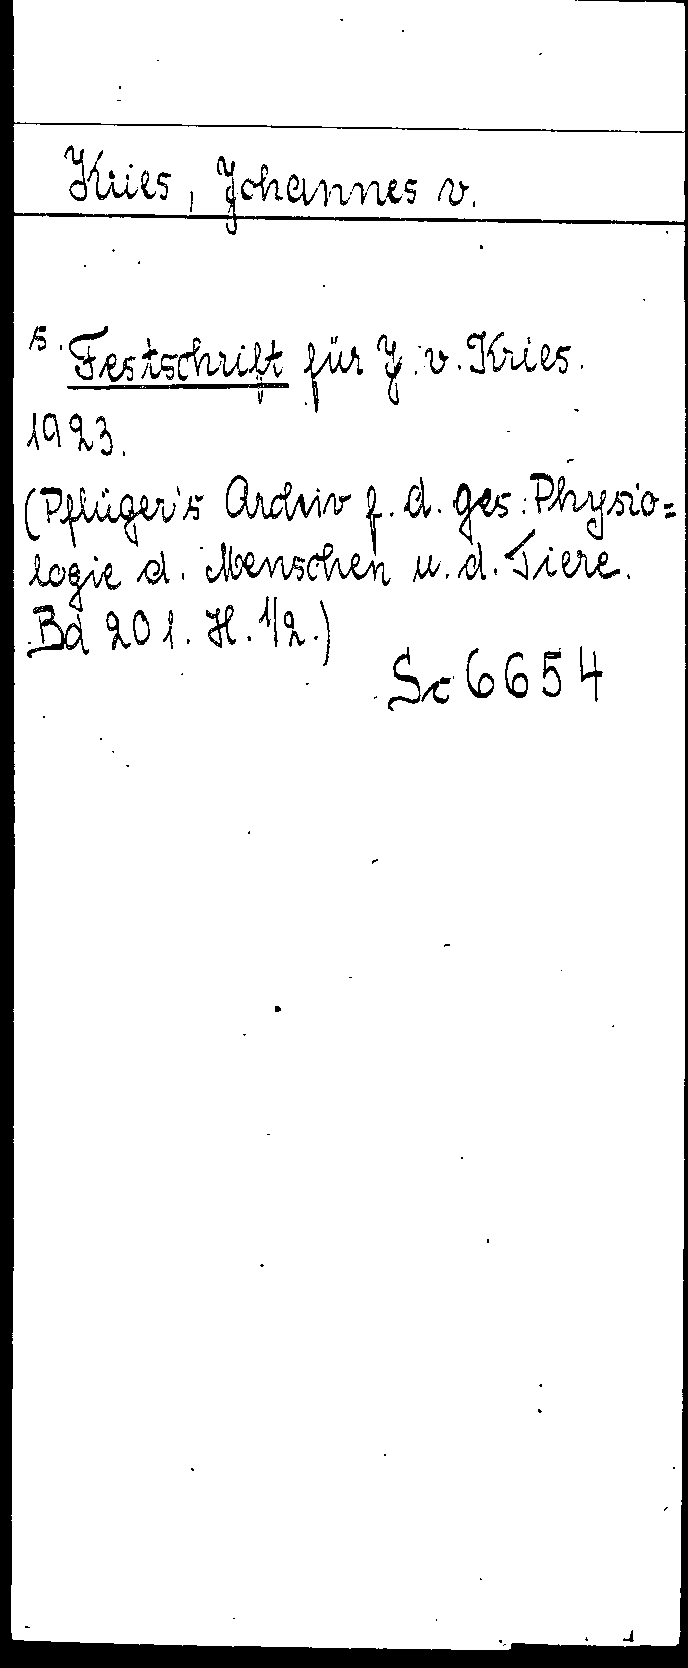 Kries, Johannes v.
s. Festschrift für J. v. Kries.
1923.
(Pflüger's Archiv f. d. ges. Physio=
logie d. Menschen u. d. Tiere.
Bd 201. H. 1/2.)
Sc 6654